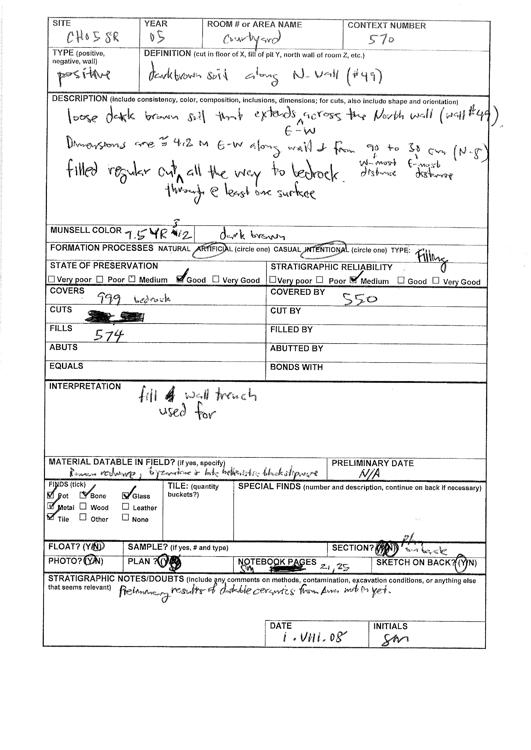 SITE YEAR ROOM # or AREA NAME CONTEXT NUMBER
CH05SR 05 Courtyard 570
TYPE (positive, negative, wall) DEFINITION (cut in floor of X, fill of pit Y, north wall of room Z, etc.)
positive dark brown soil along N-wall (#49)
DESCRIPTION (include consistency, color, composition, inclusions, dimensions; for cuts, also include shape and orientation)
loose dark brown soil that extends across the North wall (wall #49).
E-W
Dimensions are ≈ 4.2 m E-W along wall & from 90 to 30 cm (N-S)
W-most distance E-most distance
filled regular cut all the way to bedrock.
through @ least one surface
MUNSELL COLOR 7.5YR 3/2 dark brown
FORMATION PROCESSES NATURAL ARTIFICIAL (circle one) CASUAL INTENTIONAL (circle one) TYPE: Filling
STATE OF PRESERVATION STRATIGRAPHIC RELIABILITY
Very poor Poor Medium Good Very Good Very poor Poor Medium Good Very Good
COVERS 999 bedrock COVERED BY 550
CUTS CUT BY
FILLS 574 FILLED BY
ABUTS ABUTTED BY
EQUALS BONDS WITH
INTERPRETATION
fill wall trench
used for
MATERIAL DATABLE IN FIELD? (if yes, specify) PRELIMINARY DATE
Roman redware, byzantine & late hellenistic blackslipware N/A
FINDS (tick) TILE: (quantity buckets?) SPECIAL FINDS (number and description, continue on back if necessary)
Pot Bone Glass
Metal Wood Leather
Tile Other None
FLOAT? (Y/N) SAMPLE? (if yes, # and type) SECTION? (Y/N) plan on back
PHOTO? (Y/N) PLAN ? (Y/N) NOTEBOOK PAGES SM 21, 25 SKETCH ON BACK? (Y/N)
STRATIGRAPHIC NOTES/DOUBTS (Include any comments on methods, contamination, excavation conditions, or anything else that seems relevant) Preliminary results of datable ceramics from not in yet.
DATE INITIALS
1.VIII.05 SM